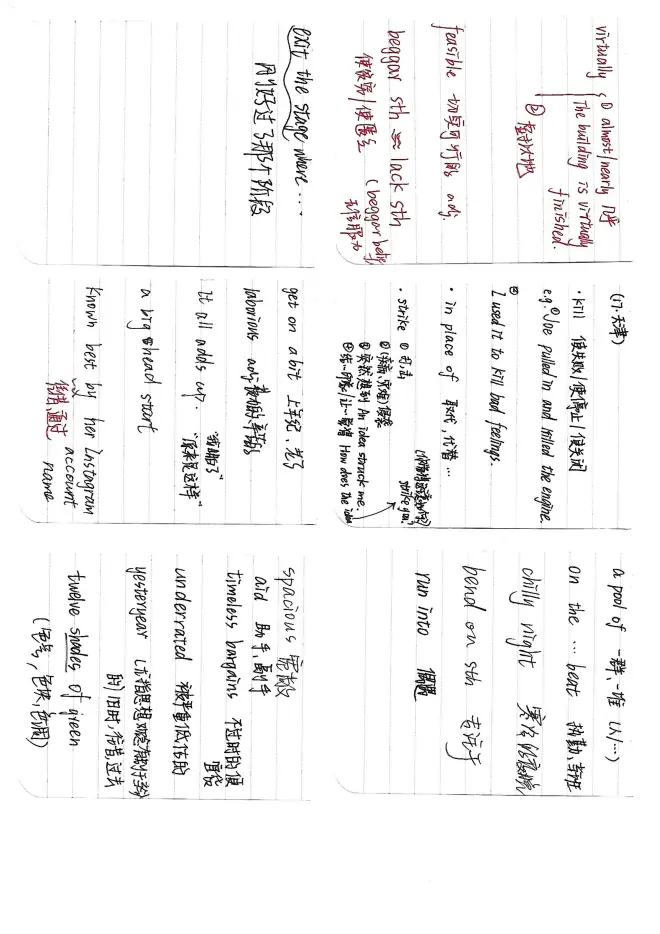 virtually ① almost/nearly 几乎
The building is virtually
finished.
②
feasible 切实可行的 adj.
beggar sth ≈ lack sth
使贫穷/使匮乏 (beggar belief
exit the stage where...
阶段
(17·天津)
· kill 使失败/使停止/使关闭
e.g. ① Joe pulled in and killed the engine.
②
I used it to kill bad feelings.
· in place of 取代,代替...
· strike ① 打,击
③ 突然想到 An idea struck me.
How does the idea
strike you?
get on a bit 上年纪,老了
laborious adj
it all adds up.
"原来是这样"
a big head start
known best by her Instagram
account
name
通过
a pool of 一群,一堆 (人/...)
on the ... beat
chilly night 寒冷的夜晚
bend on sth
run into 偶遇
spacious 宽敞
aid 助手,副手
timeless bargains 不过时的便
宜货
underrated 被严重低估的
yesteryear
twelve shades of green